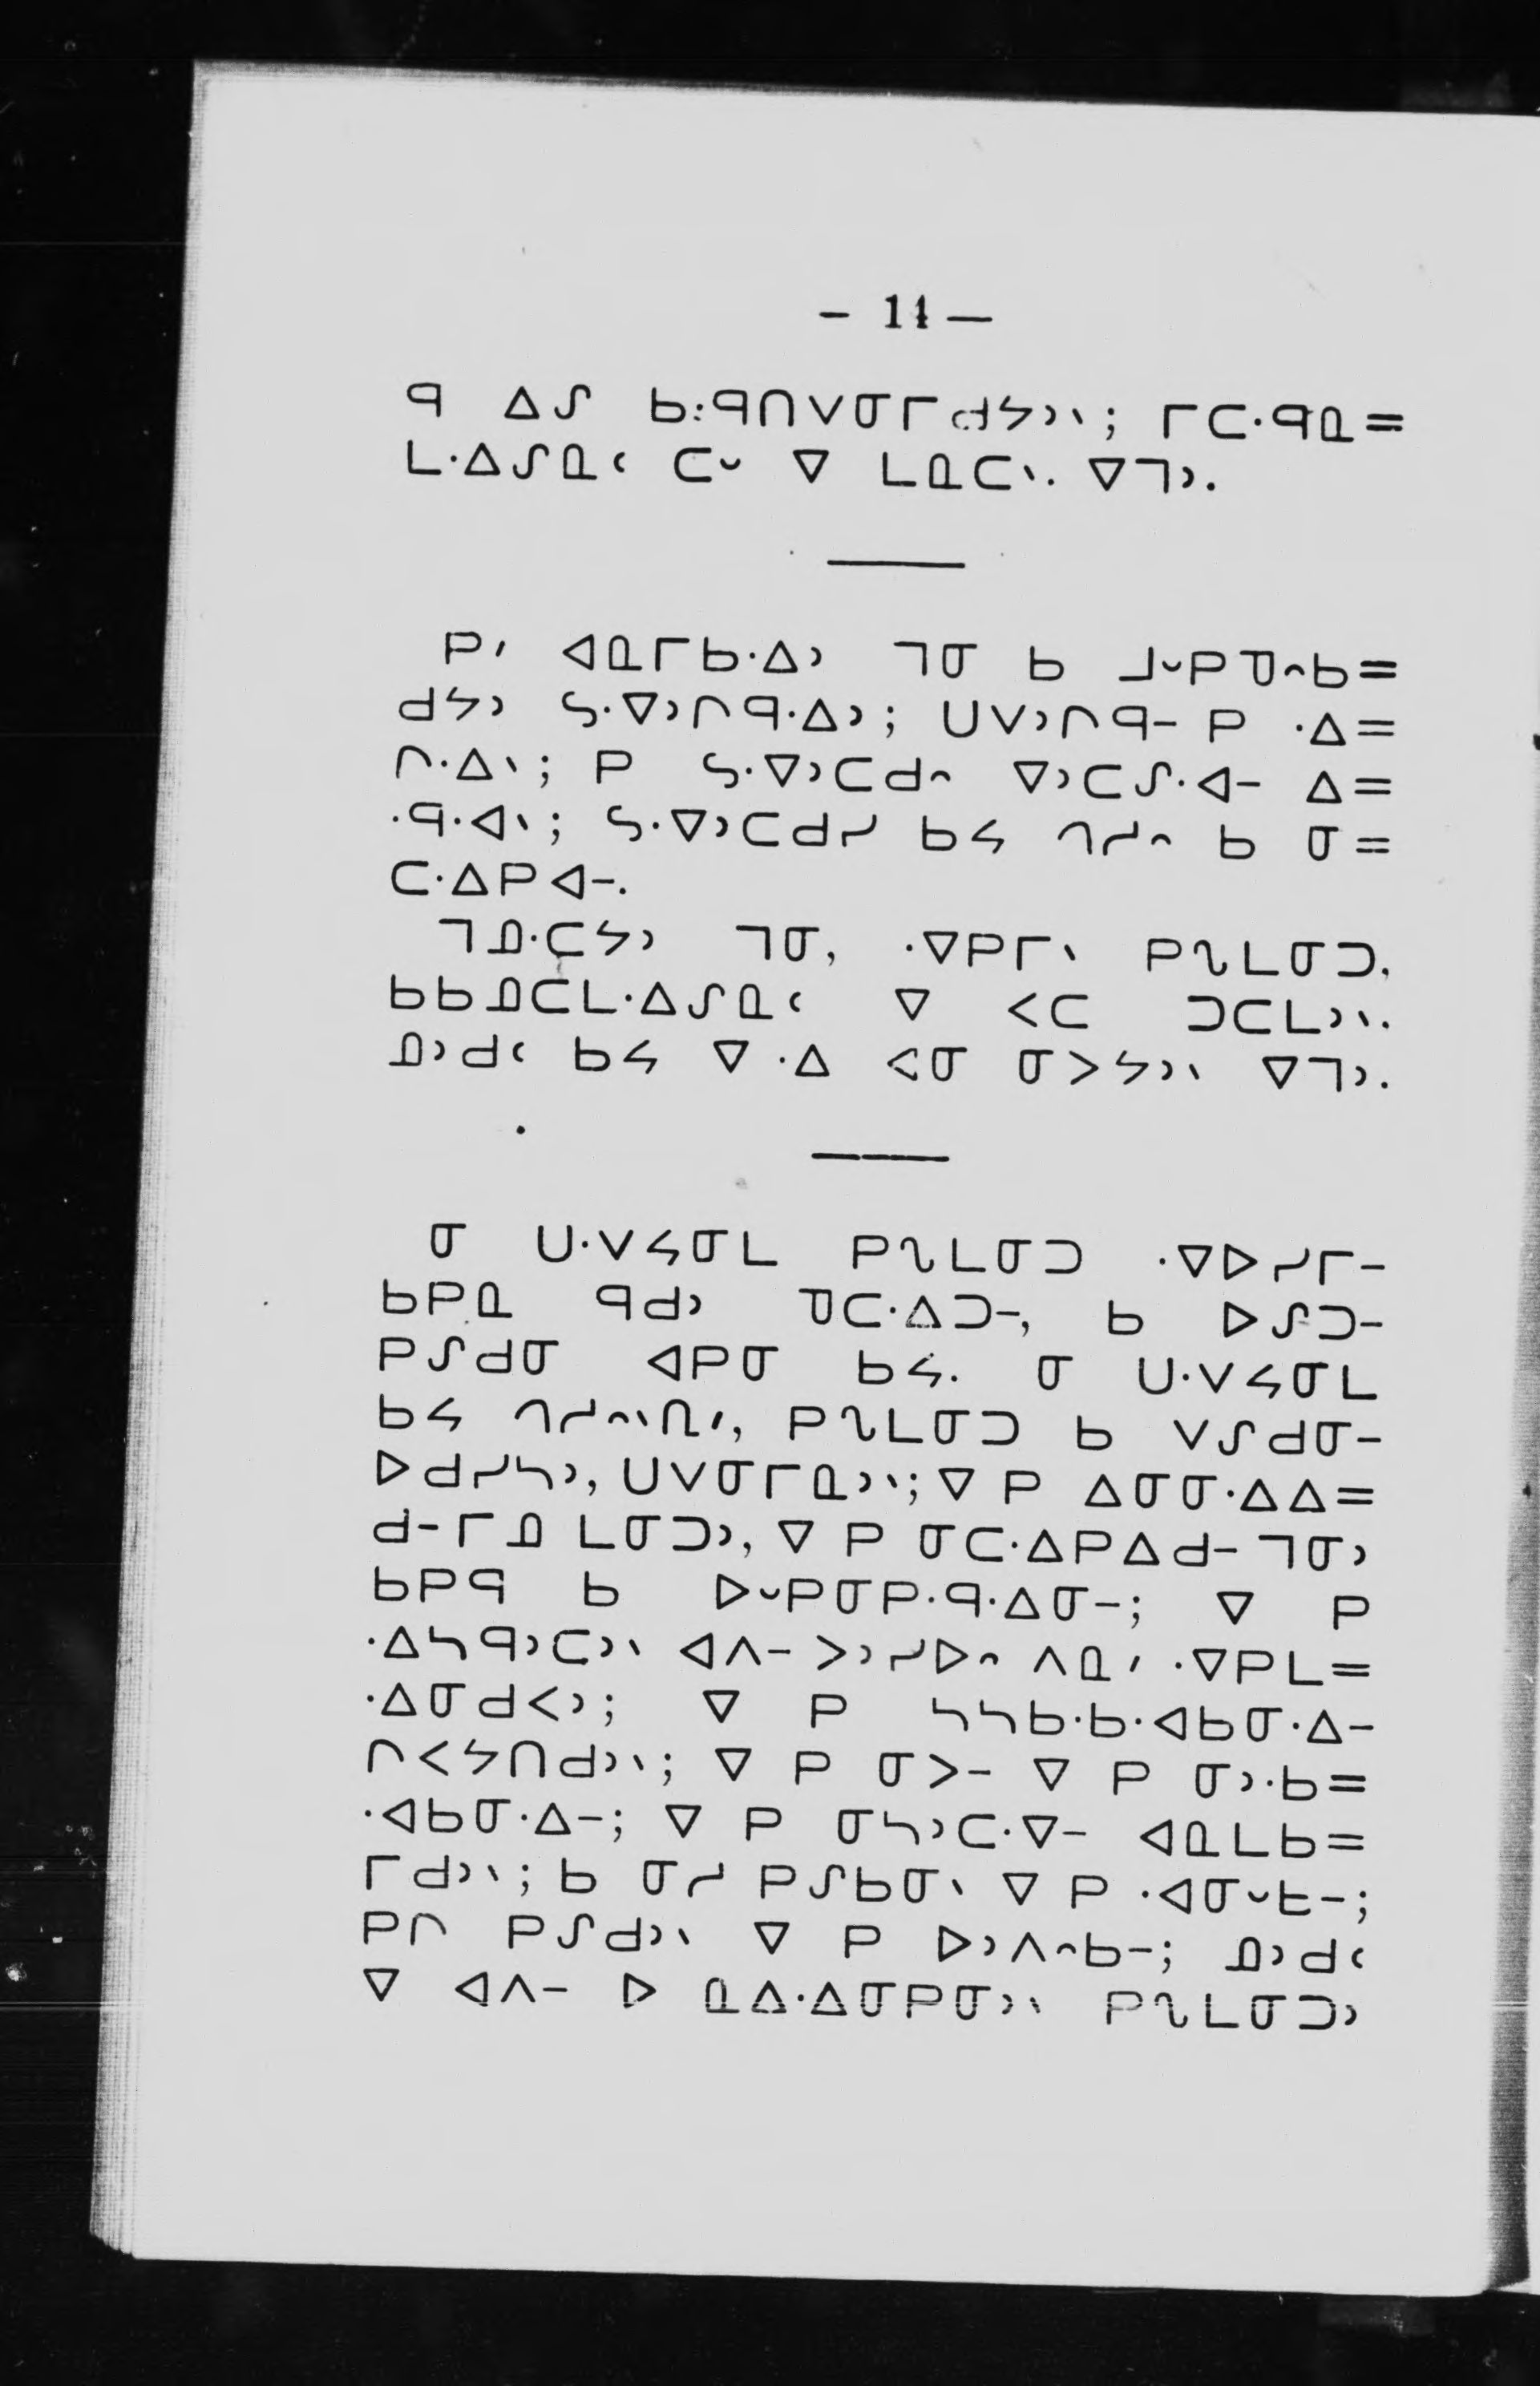 — 14 —
ᑫ ᐃᔑ ᑲ:ᑫᑎᐯᓂᒥᑯᔭᐣᐠ; ᒥᑕᐧᑫᓇ=
ᒪᐧᐃᔑᓇᐸ ᑕᐨ ᐁ ᒪᓇᑕᐠ. ᐁᒣᐣ.
ᑭᐟ ᐊᓇᒥᑲᐧᐃᐣ ᒣᓂ ᑲ ᒧᐨᑭᓀᐢᑲ=
ᑯᔭᐣ ᓴᐧᐁᐣᒋᑫᐧᐃᐣ; ᑌᐯᐣᒋᑫ- ᑭ ᐧᐃ=
ᒋᐧᐃᐠ; ᑭ ᓴᐧᐁᐣᑕᑯᐢ ᐁᐣᑕᔑᐧᐊ- ᐃ=
ᐧᑫᐧᐊᐠ; ᓴᐧᐁᐣᑕᑯᓯ ᑲᔦ ᒉᓱᐢ ᑲ ᓂ=
ᑕᐧᐃᑭᐊ-.
ᒣᓄᐧᑕᔭᐣ ᒣᓂ, ᐧᐁᑭᒥᐠ ᑭᔐᒪᓂᑐ,
ᑲᑲᓄᑕᒪᐧᐃᔑᓇᐸ ᐁ ᐸᑕ ᑐᑕᒪᐣᐠ.
ᓄᐣᑯᐸ ᑲᔦ ᐁ ᐧᐃ ᐸᓂ ᓂᐳᔭᐣᐠ ᐁᒣᐣ.
ᓂ ᑌᐧᐯᔦᓂᒪ ᑭᔐᒪᓂᑐ ᐧᐁᐅᓯᒥ-
ᑲᑭᓇ ᑫᑯᐣ ᓀᑕᐧᐃᑐ-, ᑲ ᐅᔑᑐ-
ᑭᔑᑯᓂ ᐊᑭᓂ ᑲᔦ. ᓂ ᑌᐧᐯᔦᓂᒪ
ᑲᔦ ᒉᓱᐢᐠᕆᐟ, ᑭᔐᒪᓂᑐ ᑲ ᐯᔑᑯᓂ-
ᐅᑯᓯᓴᐣ, ᑌᐯᓂᒥᓇᐣᐠ; ᐁ ᑭ ᐃᓂᓂᐧᐃᐃ=
ᑯ- ᒥᓄ ᒪᓂᑐᐣ, ᐁ ᑭ ᓂᑕᐧᐃᑭᐃᑯ- ᒣᓂᐣ
ᑲᑭᑫ ᑲ ᐅᐨᑭᓂᑭᐧᑫᐧᐃᓂ-; ᐁ ᑭ
ᐧᐃᓴᑫᐣᑕᐣᐠ ᐊᐱ- ᐳᐣᓯᐅᐢ ᐱᓇᐟ ᐧᐁᑭᒪ=
ᐧᐃᓂᑯᐸᐣ; ᐁ ᑭ ᓴᓴᑲᐧᑲᐧᐊᑲᓂᐧᐃ-
ᒋᐸᔭᑎᑯᐣᐠ; ᐁ ᑭ ᓂᐳ- ᐁ ᑭ ᓂᐣᐧᑲ=
ᐧᐊᑲᓂᐧᐃ-; ᐁ ᑭ ᓂᓴᐣᑕᐧᐁ- ᐊᓇᒪᑲ=
ᒥᑯᐣᐠ; ᑲ ᓂᓱ ᑭᔑᑲᓂᐠ ᐁ ᑭ ᐧᐊᓂᐨᑲ-;
ᑭᒋ ᑭᔑᑯᐣᐠ ᐁ ᑭ ᐅᐣᐱᐢᑲ-; ᓄᐣᑯᐸ
ᐁ ᐊᐱ- ᐅ ᓇᐃᐧᐃᓂᑭᓂᐣᐠ ᑭᔐᒪᓂᑐᐣ